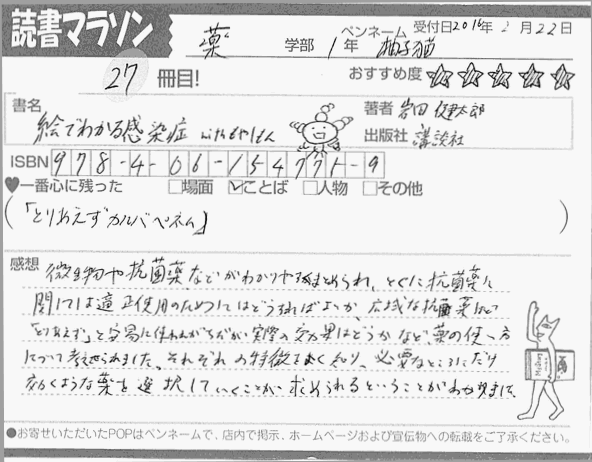 読書マラソン
薬 学部 1年
ペンネーム 柚子猫
受付日2016年2月22日
27 冊目!
おすすめ度 ☆☆☆☆☆
書名 絵でわかる感染症 withもやしもん
著者 岩田健太郎
出版社 講談社
ISBN 978-4-06-154775-9
♥一番心に残った □場面 ☑ことば □人物 □その他
(「とりあえずカルバペネム」)
感想 微生物や抗菌薬などがわかりやすくまとめられ、とくに抗菌薬に
関しては適正使用のためにはどうすればよいか、広域な抗菌薬はど
「とりあえず」と安易に使われがちだが実際の効果はどうかなど、薬の使い方
について考えさせられました。それぞれの特徴をよく知り、必要なところにだけ
効くような薬を選択していくことが求められるということがわかりました。
●お寄せいただいたPOPはペンネームで、店内で掲示、ホームページおよび宣伝物への転載をご了承ください。